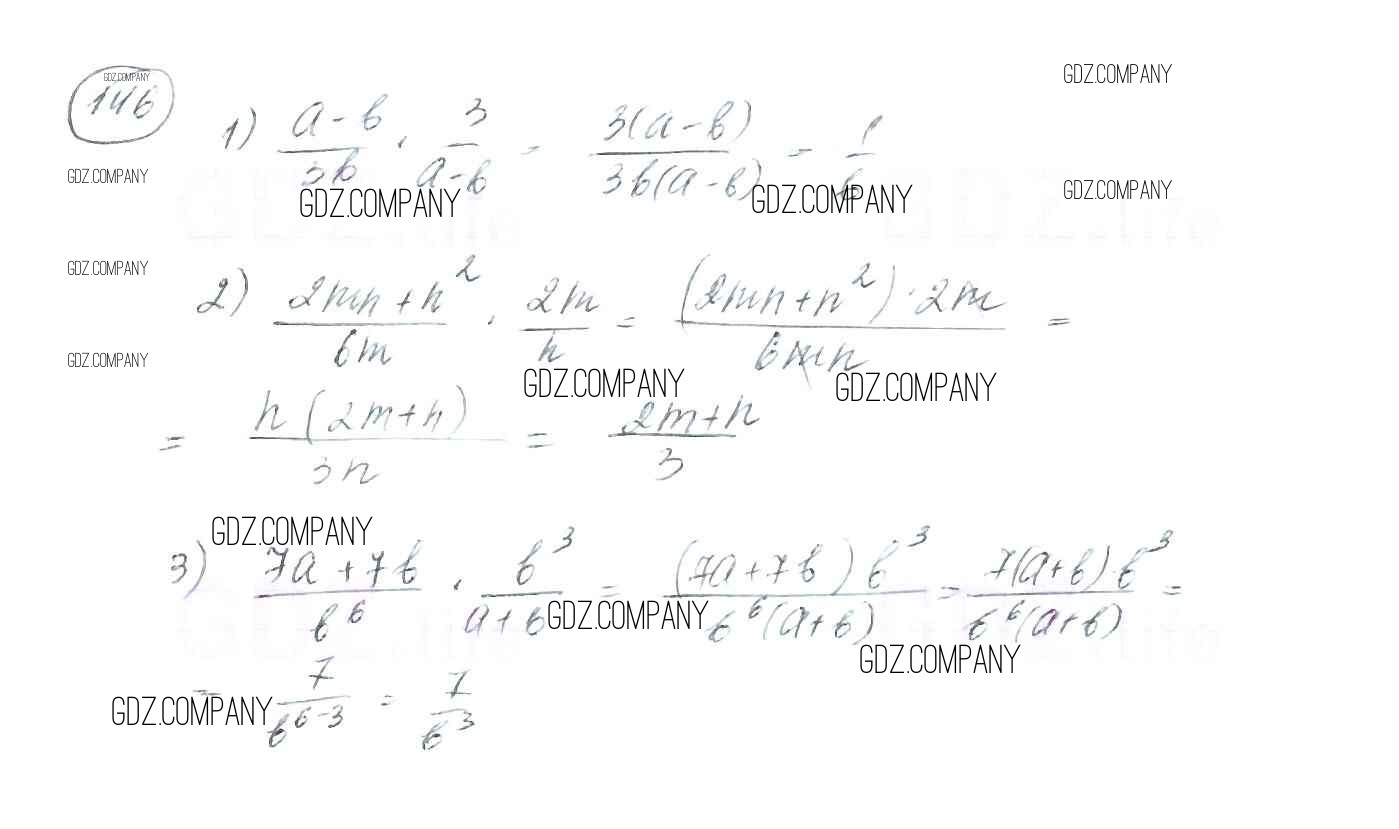 GDZ.COMPANY
146
GDZ.COMPANY
1) (a-b)/(3b) · 3/(a-b) = 3(a-b)/(3b(a-b)) = 1/b
GDZ.COMPANY
GDZ.COMPANY
GDZ.COMPANY
GDZ.COMPANY
GDZ.COMPANY
2) (2mn+n²)/(6m) · 2m/n = (2mn+n²)·2m/(6mn) =
GDZ.COMPANY
GDZ.COMPANY
GDZ.COMPANY
= n(2m+n)/(3n) = (2m+n)/3
GDZ.COMPANY
3) (7a+7b)/b⁶ · b³/(a+b) = (7a+7b)b³/(b⁶(a+b)) = 7(a+b)·b³/(b⁶(a+b)) =
GDZ.COMPANY
GDZ.COMPANY
= 7/b⁶⁻³ = 7/b³
GDZ.COMPANY